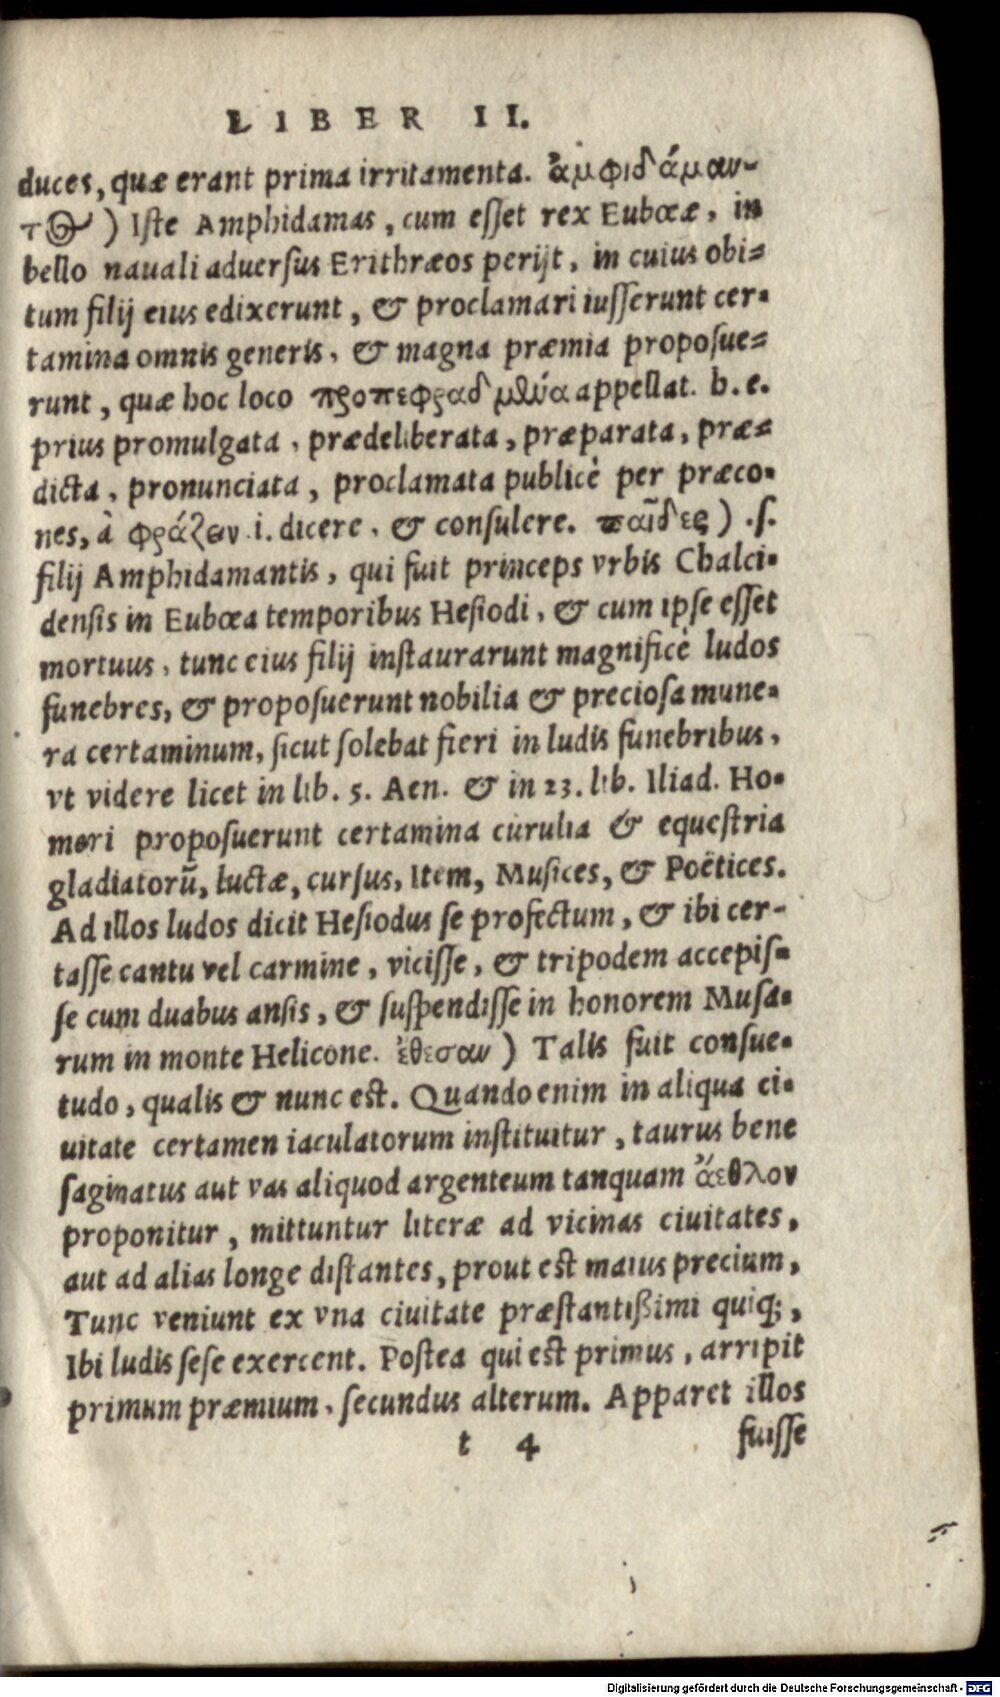 LIBER II.
duces, quæ erant prima irritamenta. ἀμφιδάμαν-
τος ) Iſte Amphidamas, cum eſſet rex Eubœæ, in
bello nauali aduerſus Erithræos perijt, in cuius obi-
tum filij eius edixerunt, & proclamari iuſſerunt cer-
tamina omnis generis, & magna præmia propoſue-
runt, quæ hoc loco προπεφραδμένα appellat. h. e.
prius promulgata, prædeliberata, præparata, præ-
dicta, pronunciata, proclamata publicè per præco-
nes, à φράζειν .i. dicere, & conſulere. παῖδες ) .ſ.
filij Amphidamantis, qui fuit princeps vrbis Chalci-
denſis in Eubœa temporibus Heſiodi, & cum ipſe eſſet
mortuus, tunc eius filij inſtaurarunt magnificè ludos
funebres, & propoſuerunt nobilia & precioſa mune-
ra certaminum, ſicut ſolebat fieri in ludis funebribus,
vt videre licet in lib. 5. Aen. & in 23. lib. Iliad. Ho-
meri propoſuerunt certamina curulia & equeſtria
gladiatorũ, luctæ, curſus, Item, Muſices, & Poëtices.
Ad illos ludos dicit Heſiodus ſe profectum, & ibi cer-
taſſe cantu vel carmine, viciſſe, & tripodem accepiſ-
ſe cum duabus anſis, & ſuſpendiſſe in honorem Muſa-
rum in monte Helicone. ἔθεσαν ) Talis fuit conſue-
tudo, qualis & nunc est. Quando enim in aliqua ci-
uitate certamen iaculatorum inſtituitur, taurus bene
ſaginatus aut vas aliquod argenteum tanquam ἄεθλον
proponitur, mittuntur literæ ad vicinas ciuitates,
aut ad alias longe diſtantes, prout est maius precium,
Tunc veniunt ex vna ciuitate præſtantißimi quiq;,
Ibi ludis ſeſe exercent. Poſtea qui est primus, arripit
primum præmium, ſecundus alterum. Apparet illos
t 4 fuiſſe
Digitalisierung gefördert durch die Deutsche Forschungsgemeinschaft - DFG